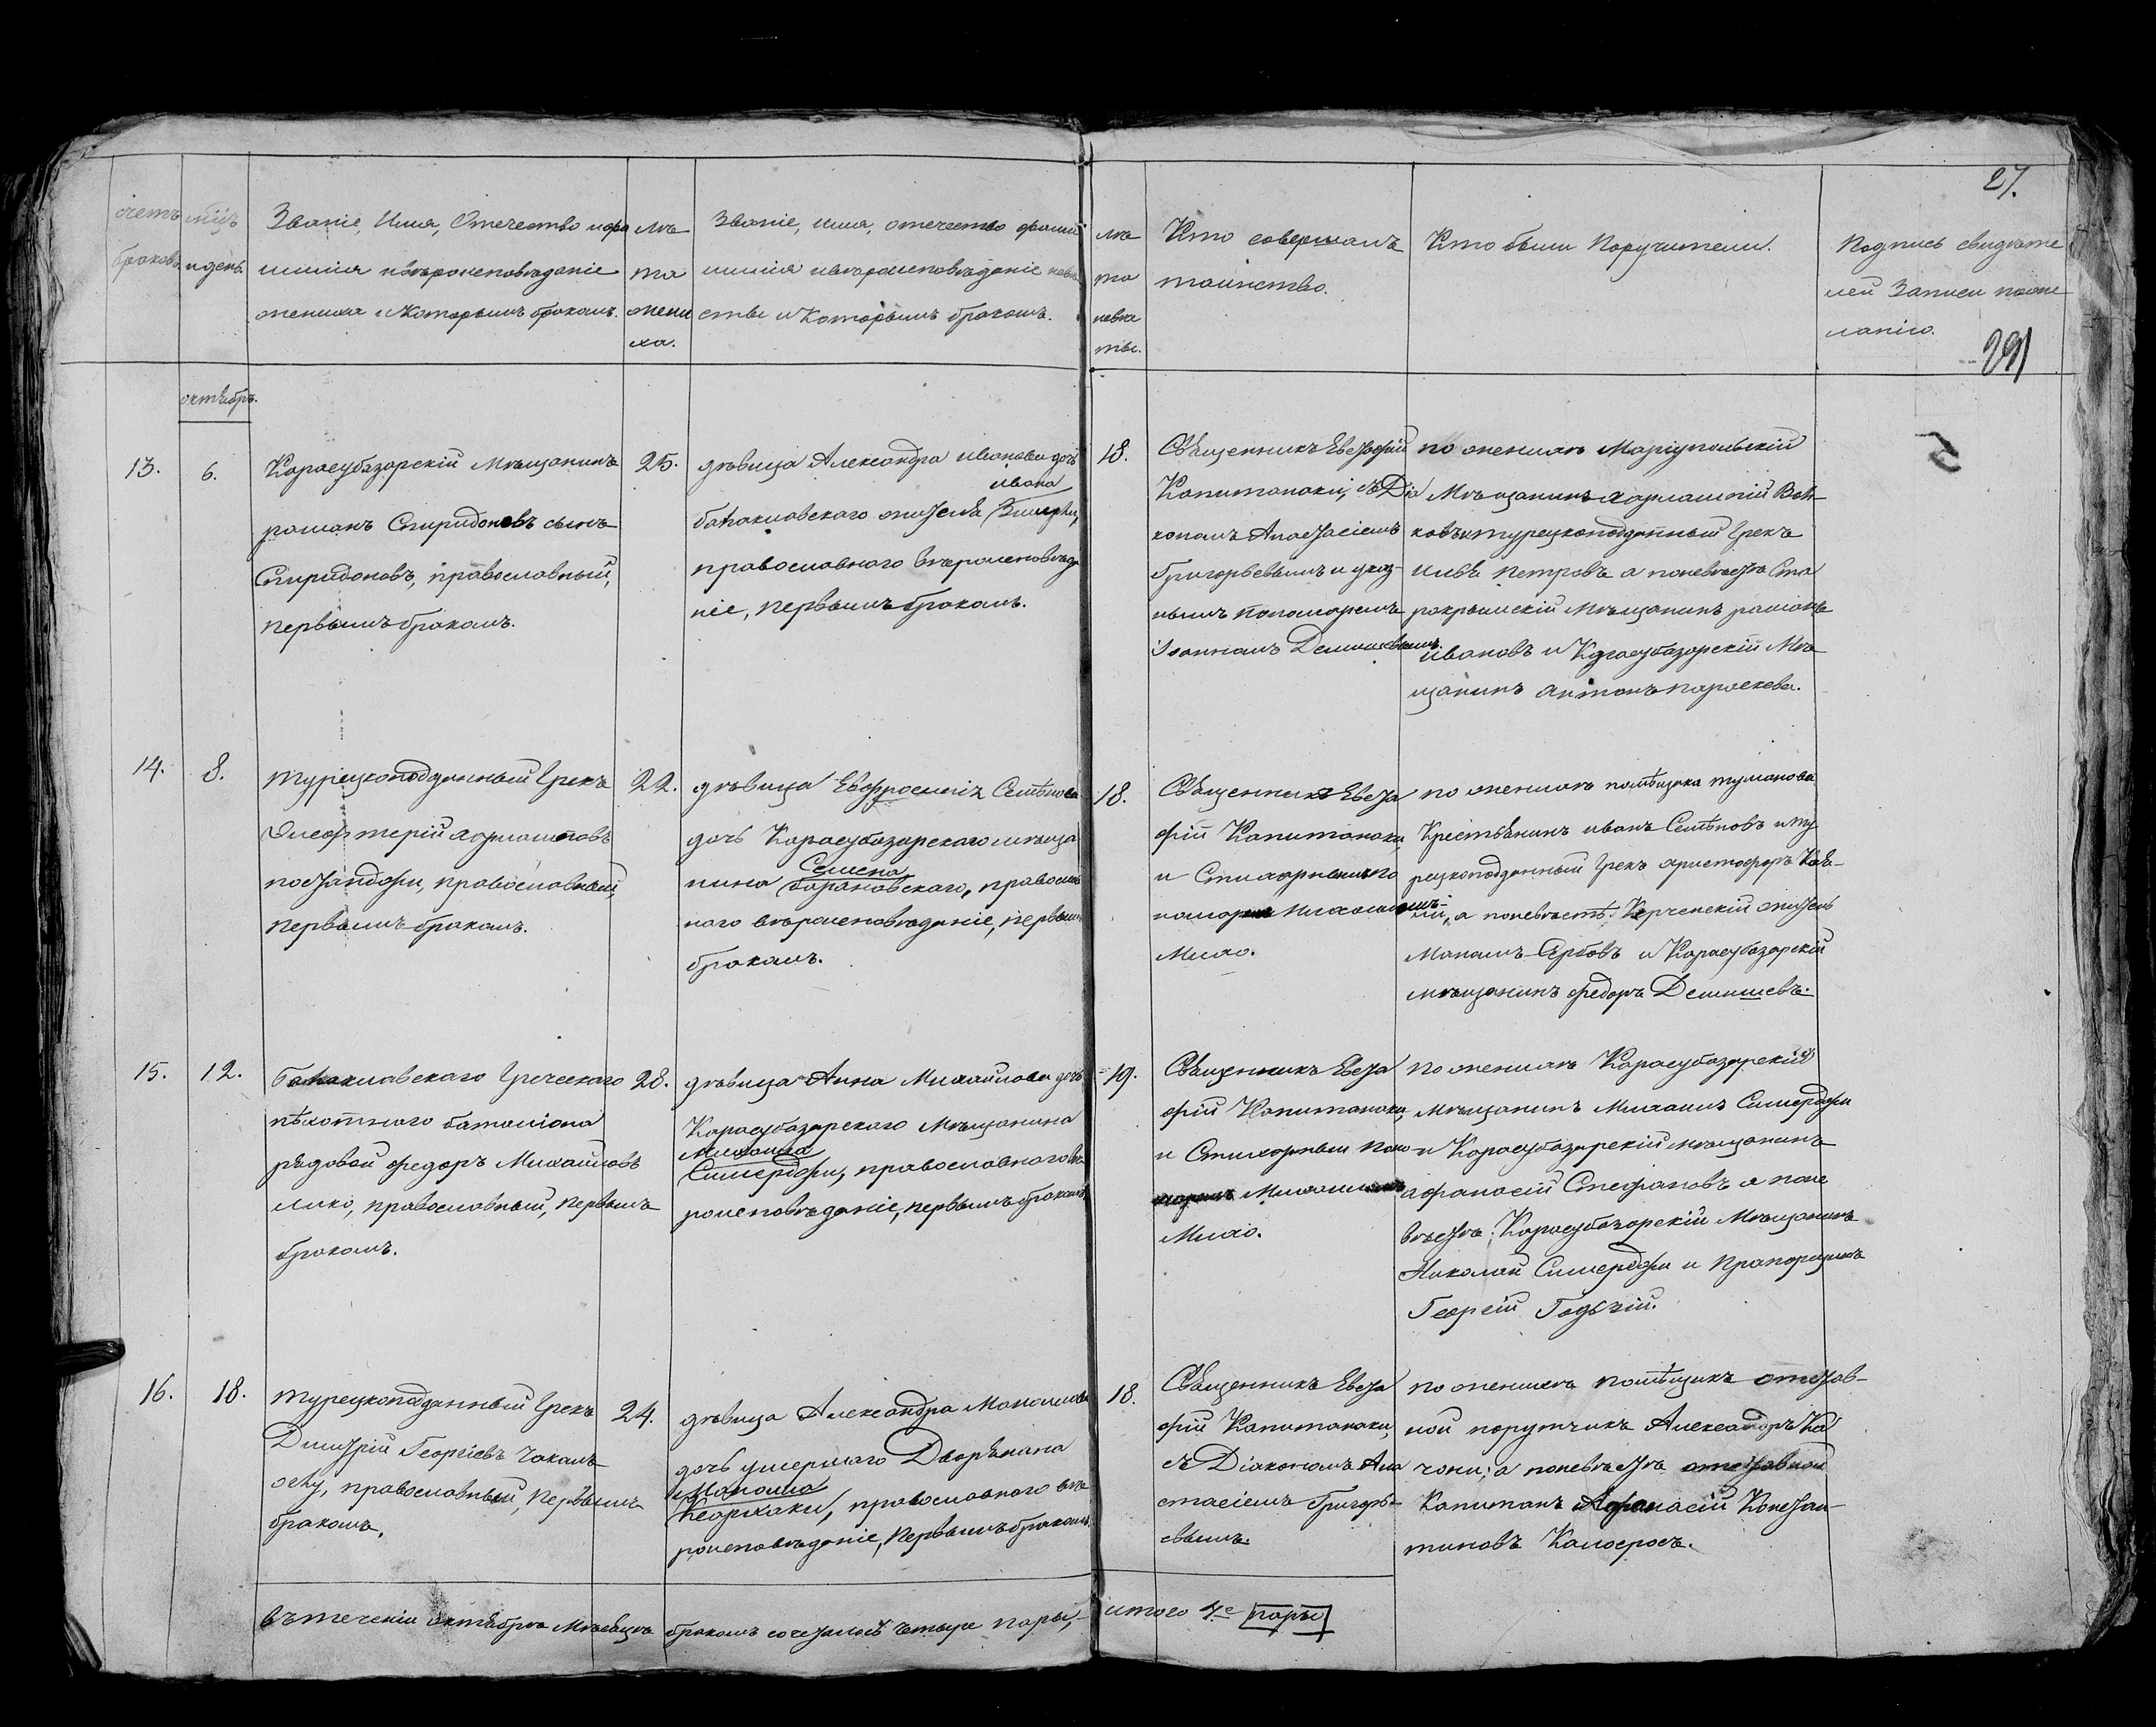 27.
291
счетъ браковъ
мцъ и день.
Званіе, Имя, Отечество и фа
милія и вѣроисповѣданіе
жениха и Которымъ бракомъ.
лѣ
та
жени
ха.
Званіе, имя, отечество фами
милія и вѣроисповѣданіе невѣ
сты и Которымъ бракомъ.
лѣ
та
невѣ
сты.
Кто совершалъ
таинство.
Кто были Поручители.
Подпись свидѣте
лей Записи по же
ланію.
октябрь.
13.
6.
Карасубазарскій Мѣщанинъ
романъ Спиридоновъ сынъ
Спиридоновъ, православный,
первымъ бракомъ.
25.
дѣвица Александра иванова дочь
ивана
балаклавскаго жителя
православнаго вѣроисповѣда
ніе, первымъ бракомъ.
18.
Священникъ Евстафій
Капитанаки, съ Діа
кономъ Анастасіемъ
Григорьевымъ и указ-
нымъ Пономаремъ
Іоанномъ
по женихѣ Маріупольскій
Мѣщанинъ
ковъ и турецкоподданный Грекъ
илья петровъ а по невѣстѣ Ста
рокрымскій Мѣщанинъ романъ
ивановъ и Карасубазарскій Мѣ
щанинъ антонъ параскева.
14.
8.
турецкоподданный Грекъ
Элефтерій
православный,
первымъ бракомъ.
22.
дѣвица Евфросинія Семѣнова
дочь Карасубазарскаго мѣща
Семена
нина барановскаго, православ
наго вѣроисповѣданіе, первымъ
бракомъ.
18.
Священникъ Евста
фій Капитанаки
и Стихарнымъ по
Михаиломъ
Михо.
по женихѣ помѣщика туманова
Крестьянинъ иванъ Семѣновъ и ту
рецкоподданный Грекъ христофоръ
а по невѣстѣ Керченскій житель
Манаилъ и Карасубазарскій
мѣщанинъ федоръ
15.
12.
балаклавскаго Греческаго
пѣхотнаго баталіона
рядовой федоръ Михайловъ
лико, православный, первымъ
бракомъ.
28.
дѣвица Анна Михайлова дочь
Карасубазарскаго Мѣщанина
Михаила
Симерджи, православнаго вѣ
роисповѣданіе, первымъ бракомъ
19.
Священникъ Евста
фій Капитанаки,
и Стихарным Поно
Михаиломъ
Михо.
по женихѣ Карасубазарскій
мѣщанинъ Михаилъ Симерджи
и Карасубазарскій мѣщанинъ
афанасій Стефановъ а по не
вѣстѣ: Карасубазарскій Мѣщанинъ
Николай Симерджи и Прапорщикъ
Георгій
16.
18.
турецкоподданный Грекъ
Димитрій Георгіевъ
православный, первымъ
бракомъ.
24.
дѣвица Александра Манаилова
дочь умершаго Дворянина
Манаила
православнаго вѣ
роисповѣданіе, первымъ бракомъ.
18.
Священникъ Евста
фій Капитанаки,
съ Діакономъ Ана
стасіемъ Григорь-
евымъ.
по женихѣ помѣщикъ отстав-
ной порутчикъ Александръ Ка
чони; а по невѣстѣ отставной
Капитанъ Афанасій Констан-
тиновъ
въ теченіи октября Мѣсяца бракомъ сочеталось четыре пары,
итого 4е пары